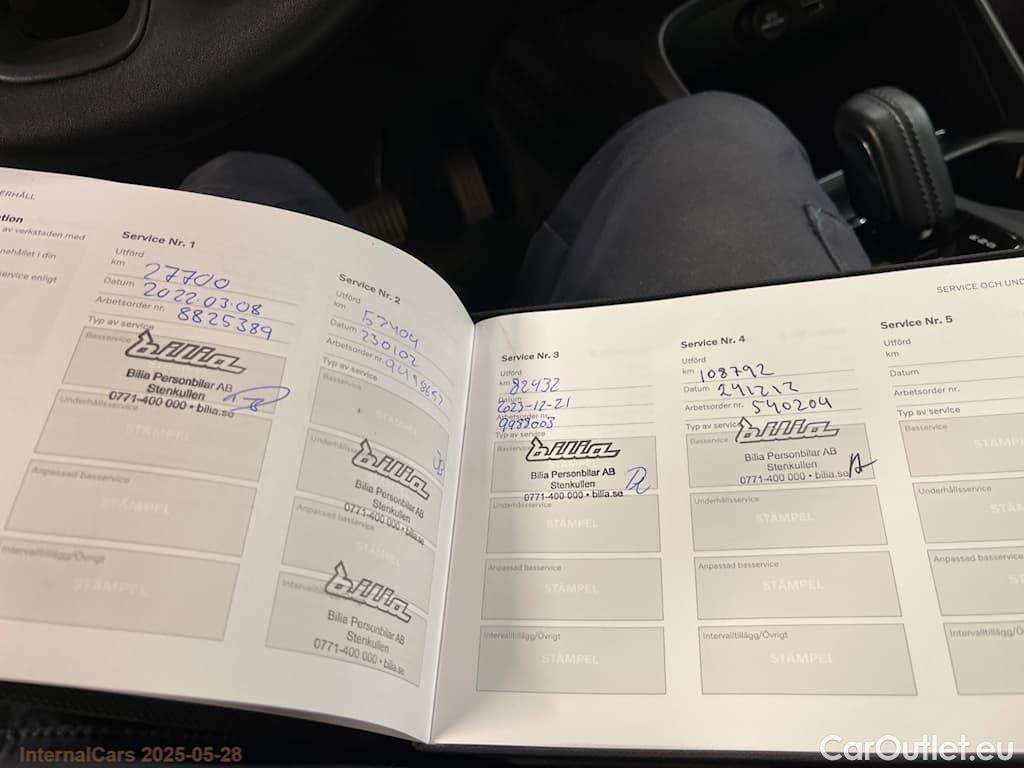 ERHÅLL
tion
av verkstaden med
nehållet i din
service enligt
Service Nr. 1
Utförd
km 27700
Datum 2022.03.08
Arbetsorder nr. 8825389
Typ av service
Basservice
bilia
Bilia Personbilar AB
Stenkullen
0771-400 000 • bilia.se
Underhållsservice
STÄMPEL
Anpassad basservice
STÄMPEL
Intervalltillägg/Övrigt
STÄMPEL
Service Nr. 2
Utförd
km 57404
Datum 230102
Arbetsorder nr.
Typ av service
Basservice
STÄMPEL
Underhållsservice
bilia
Bilia Personbilar AB
Stenkullen
0771-400 000 • bilia.se
Anpassad basservice
STÄMPEL
bilia
Bilia Personbilar AB
Stenkullen
0771-400 000 • bilia.se
SERVICE OCH UND
Service Nr. 3
Utförd
km 82432
Datum 2023-12-21
Arbetsorder nr 9988003
Typ av service
Basservice
bilia
STÄMPEL
Bilia Personbilar AB
Stenkullen
0771-400 000 • bilia.se
Underhållsservice
STÄMPEL
Anpassad basservice
STÄMPEL
Intervalltillägg/Övrigt
STÄMPEL
Service Nr. 4
Utförd
km 108792
Datum 241212
Arbetsorder nr. 540204
Typ av service
Basservice
bilia
Bilia Personbilar AB
Stenkullen
0771-400 000 • bilia.se
Underhållsservice
STÄMPEL
Anpassad basservice
STÄMPEL
Intervalltillägg/Övrigt
STÄMPEL
Service Nr. 5
Utförd
km
Datum
Arbetsorder nr.
Typ av service
Basservice
STÄMP
Underhållsservice
STÄMP
Anpassad basservice
STÄMP
Intervalltillägg/Övri
STÄMP
InternalCars 2025-05-28
CarOutlet.eu